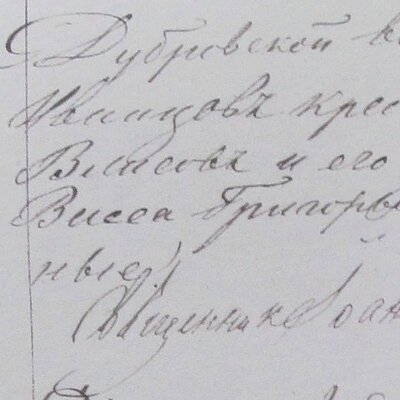 Дубровской во
Иванцовъ крес
Власовъ и его
Васса Григорь
ные)
Священник Іоан